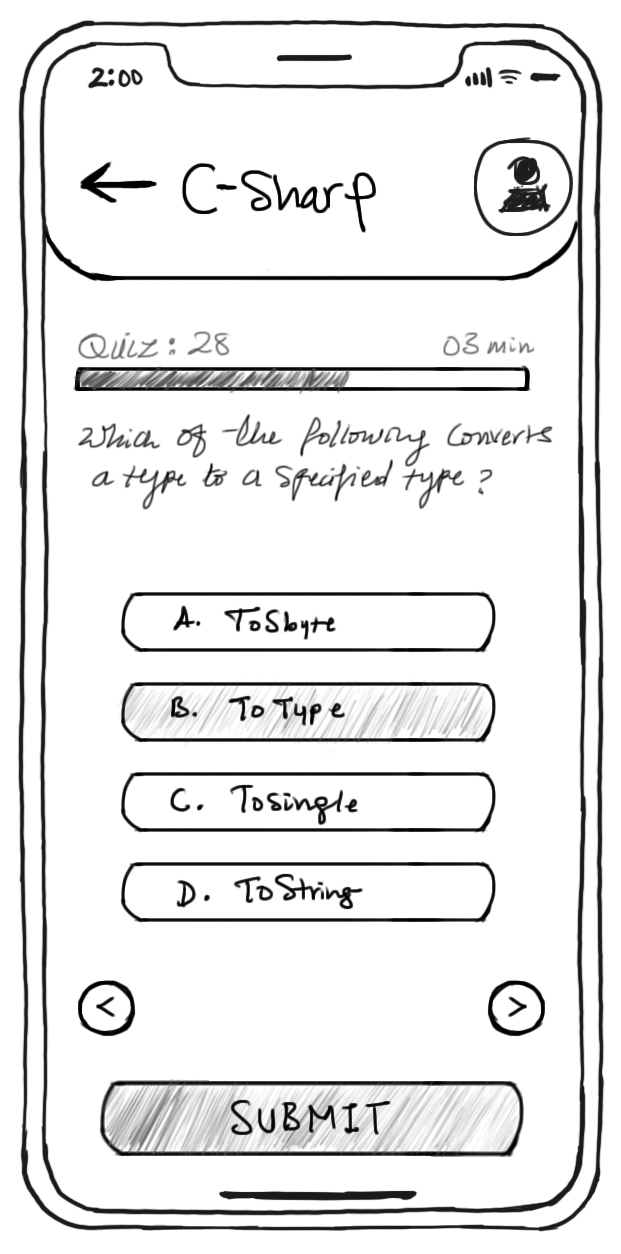 2:00
C-Sharp
Quiz: 28
03 min
Which of the following converts
a type to a specified type?
A. ToSbyte
B. ToType
C. Tosingle
D. ToString
<
>
SUBMIT